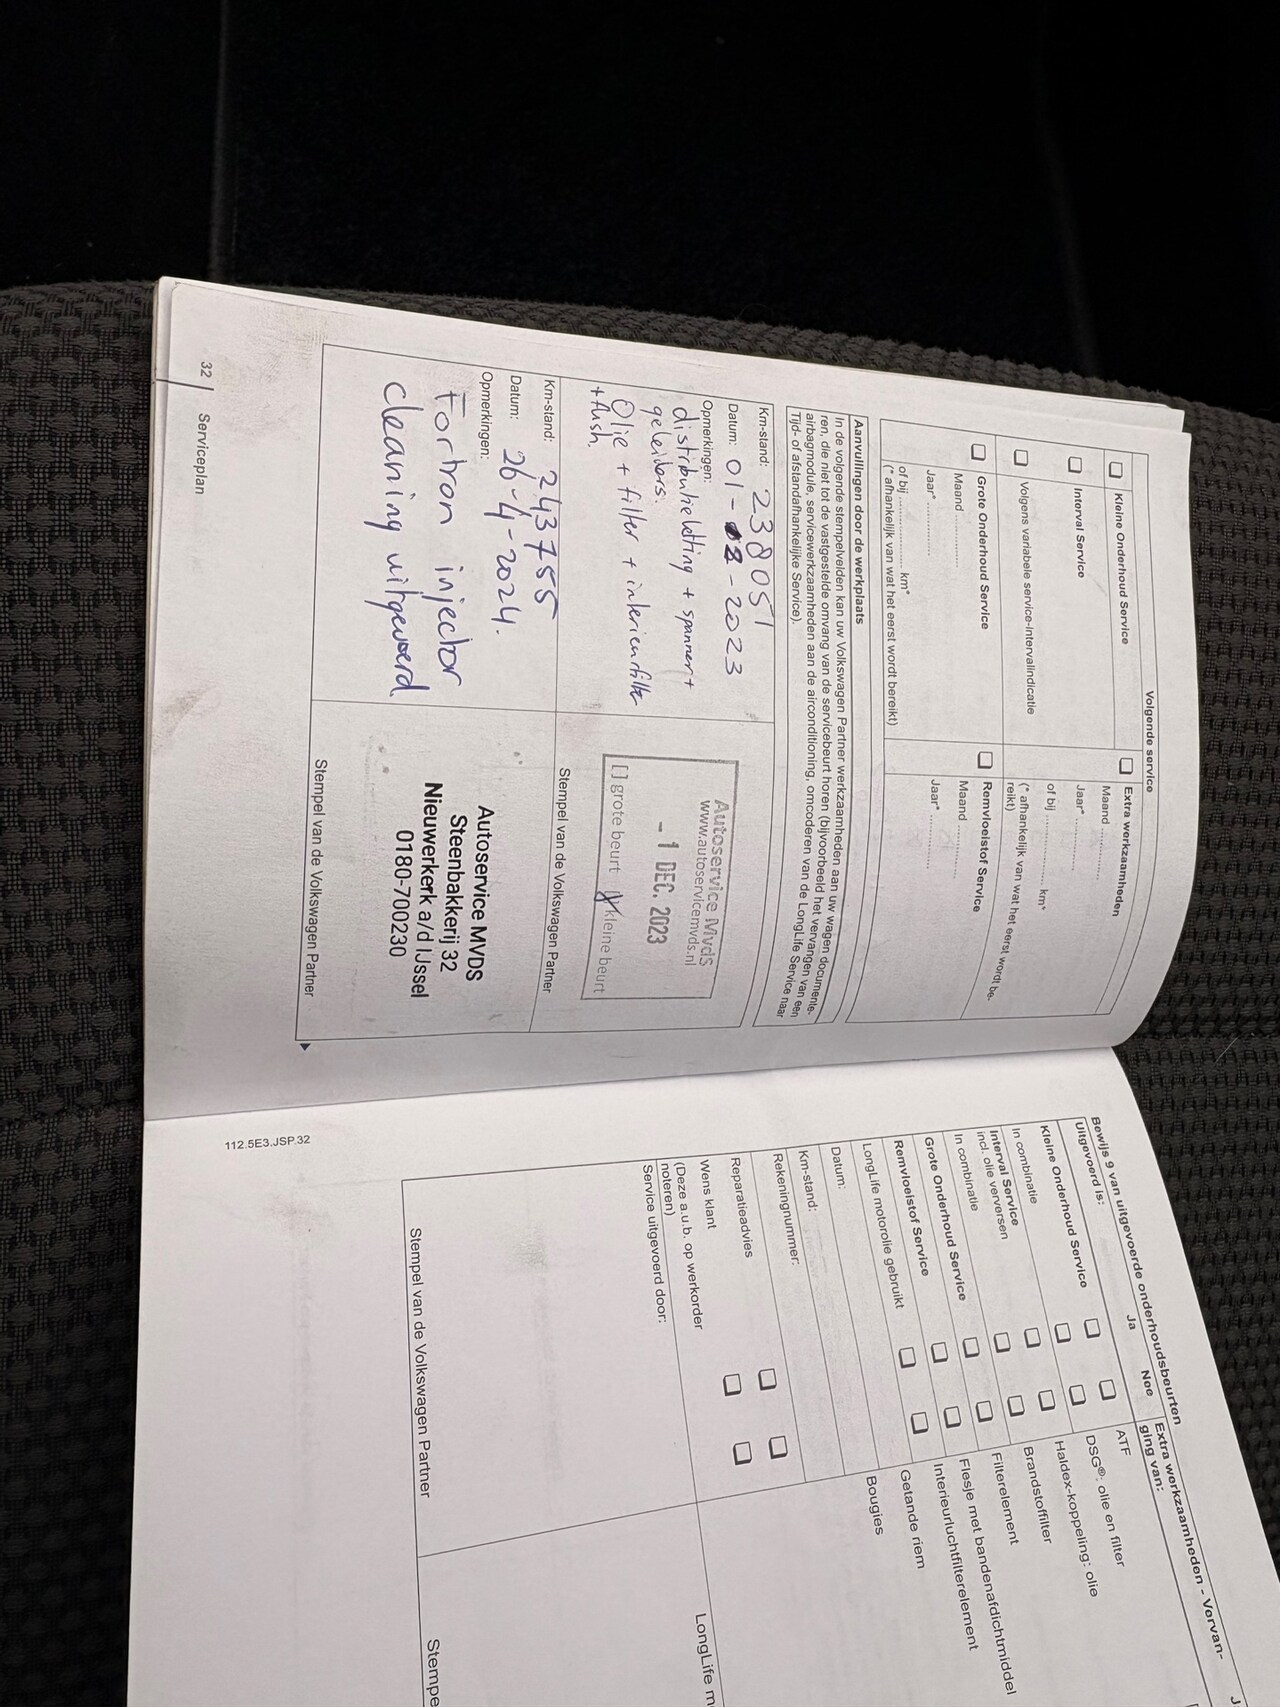 Volgende service
Kleine Onderhoud Service
Interval Service
Volgens variabele service-intervalindicatie
Grote Onderhoud Service
Maand ............
Jaar* ............
of bij ............ km*
(* afhankelijk van wat het eerst wordt bereikt)
Extra werkzaamheden
Maand ............
Jaar* ............
of bij ............ km*
(* afhankelijk van wat het eerst wordt be-
reikt)
Remvloeistof Service
Maand ............
Jaar* ............
Aanvullingen door de werkplaats
In de volgende stempelvelden kan uw Volkswagen Partner werkzaamheden aan uw wagen documente-
ren, die niet tot de vastgestelde omvang van de servicebeurt horen (bijvoorbeeld het vervangen van een
airbagmodule, servicewerkzaamheden aan de airconditioning, omcoderen van de LongLife Service naar
Tijd- of afstandafhankelijke Service).
Km-stand: 238051
Datum: 01- -2023
Opmerkingen:
distributieketting + spanner +
geleiders.
Olie + filter + interieurfilter
+ flush.
Autoservice MvdS
www.autoservicemvds.nl
- 1 DEC. 2023
[ ] grote beurt [X] kleine beurt
Stempel van de Volkswagen Partner
Km-stand: 243755
Datum: 26-4-2024.
Opmerkingen:
Fortron injector
cleaning uitgevoerd
Autoservice MVDS
Steenbakkerij 32
Nieuwerkerk a/d IJssel
0180-700230
Stempel van de Volkswagen Partner
32 | Serviceplan
Bewijs 9 van uitgevoerde onderhoudsbeurten
Uitgevoerd is:
Ja
Nee
Kleine Onderhoud Service
In combinatie
Interval Service
incl. olie verversen
In combinatie
Grote Onderhoud Service
Remvloeistof Service
LongLife motorolie gebruikt
Datum:
Km-stand:
Rekeningnummer:
Reparatieadvies
Wens klant
(Deze a.u.b. op werkorder
noteren)
Service uitgevoerd door:
Stempel van de Volkswagen Partner
Extra werkzaamheden - Vervan-
ging van:
ATF
DSG®: olie en filter
Haldex-koppeling: olie
Brandstoffilter
Filterelement
Flesje met bandenafdichtmiddel
Interieurluchtfilterelement
Getande riem
Bougies
LongLife m
Stempe
112.5E3.JSP.32